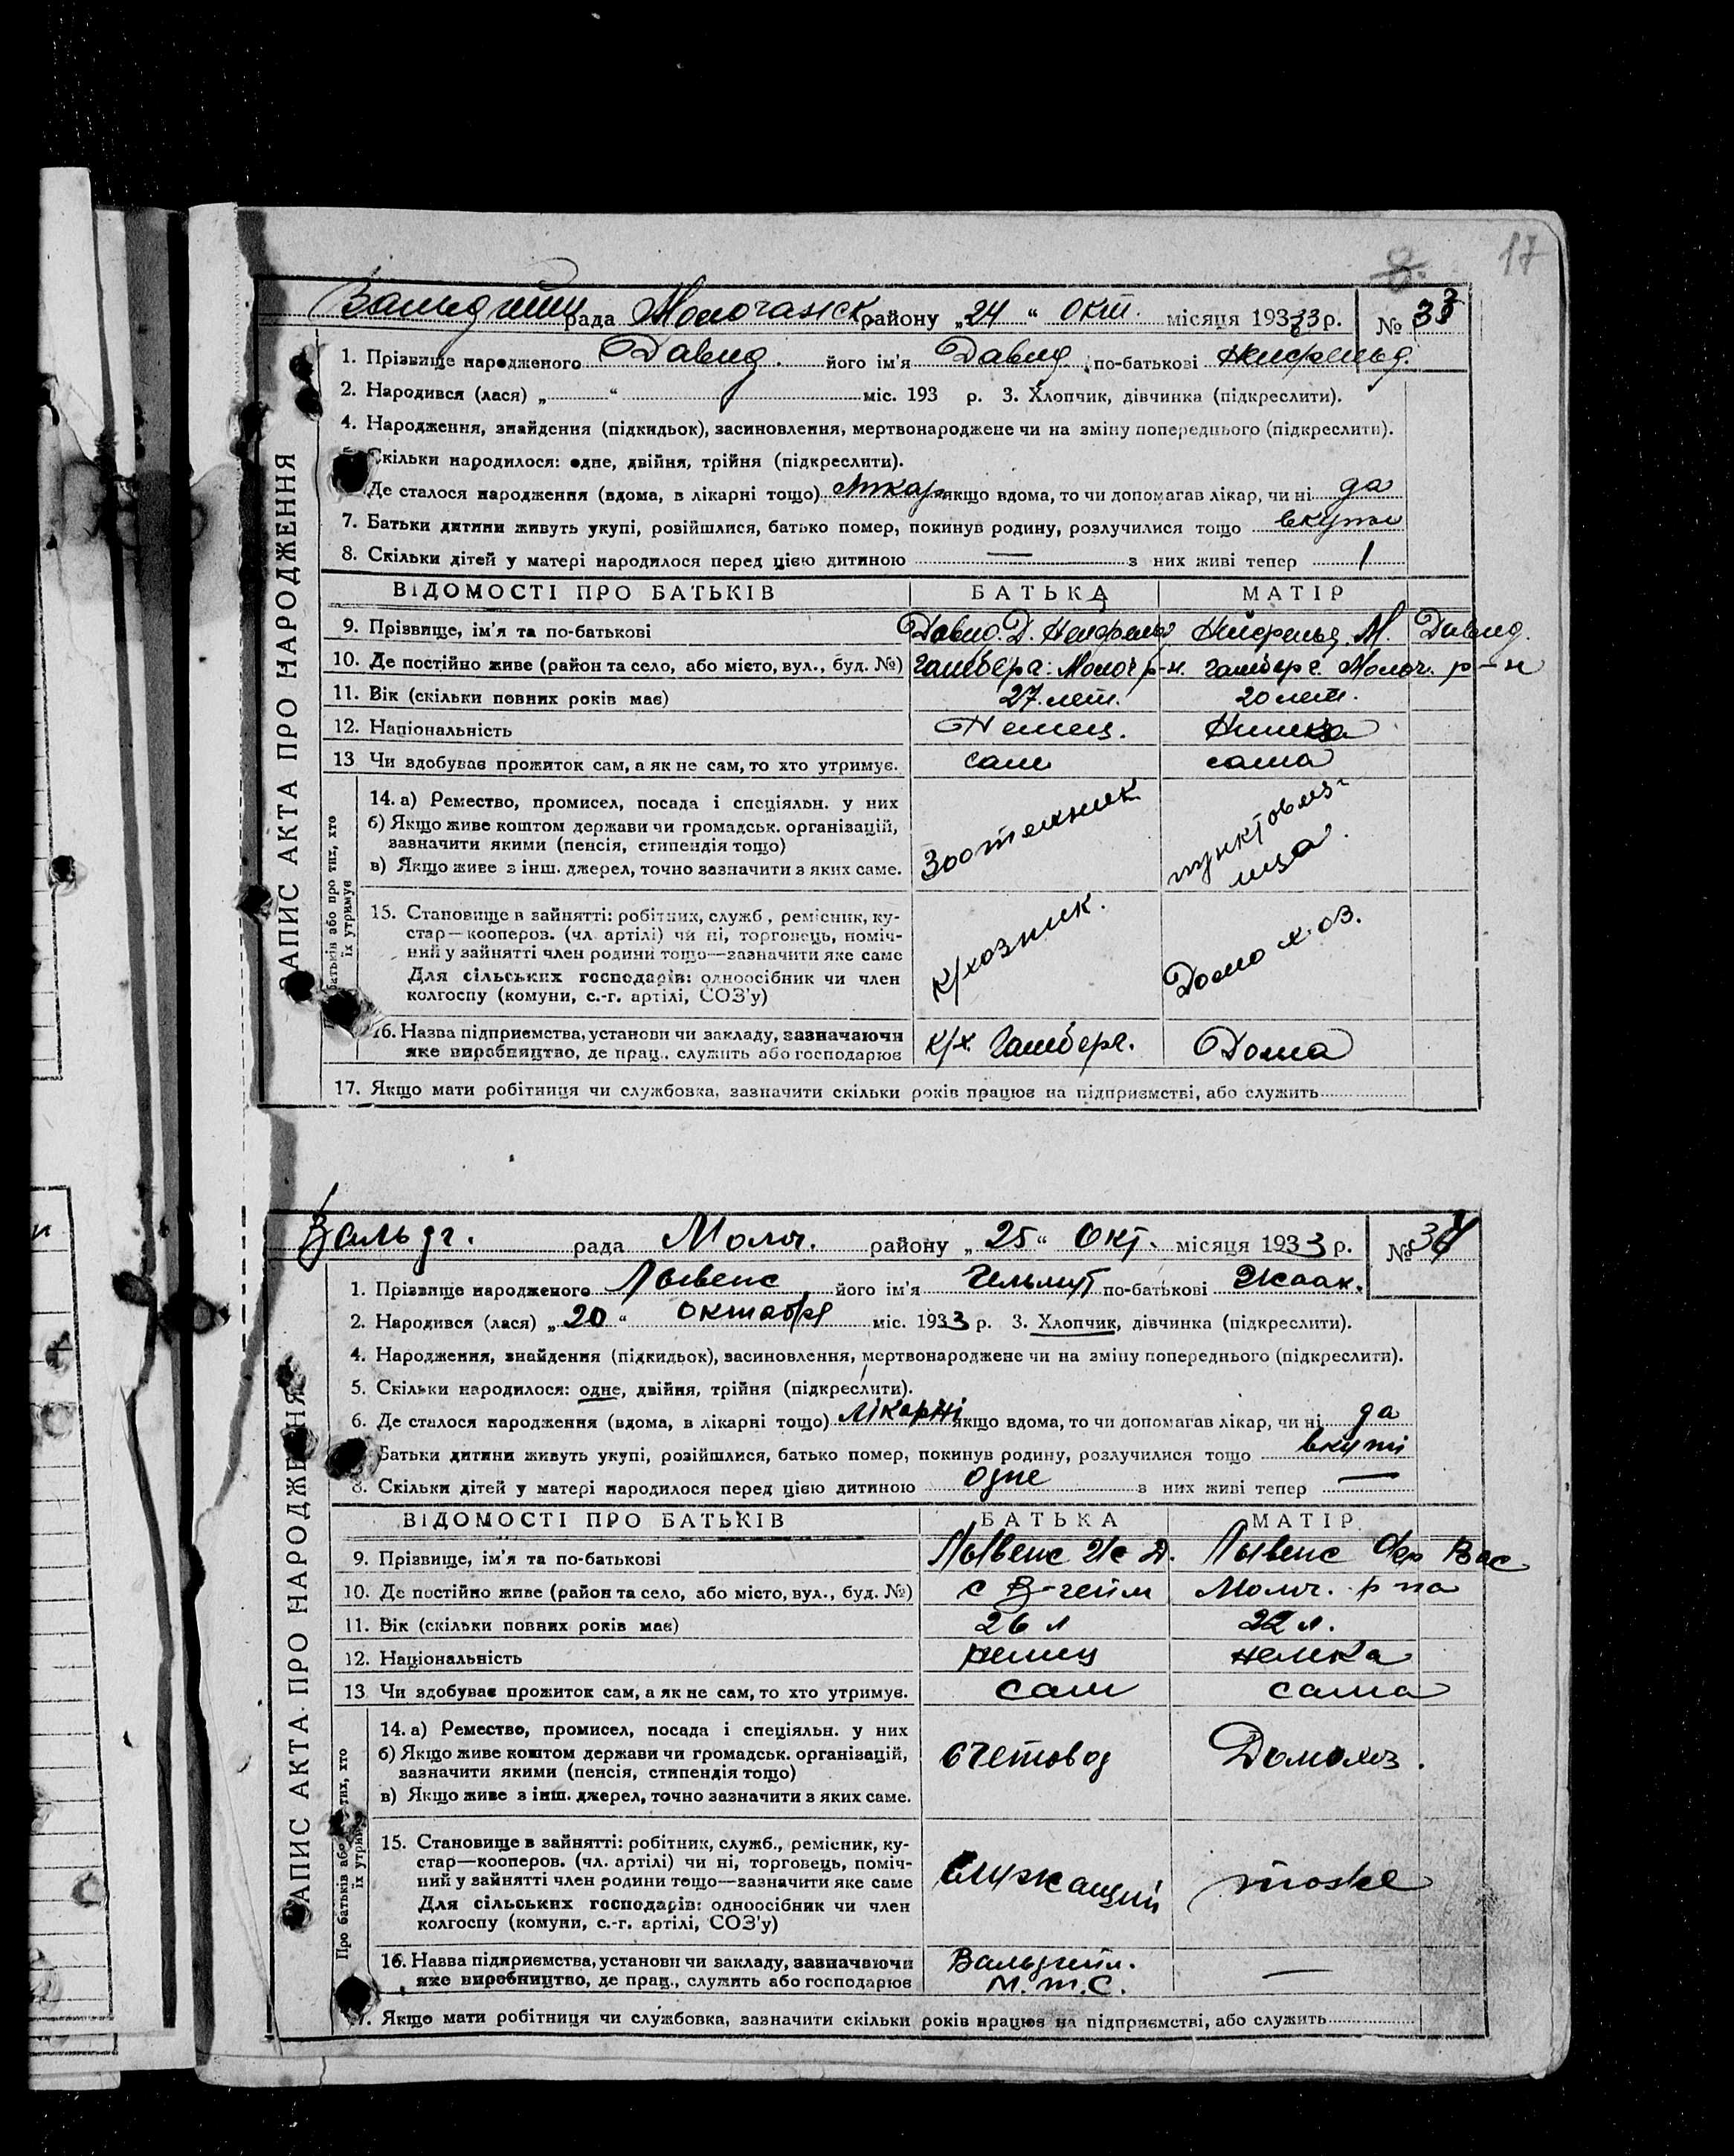 8. 17
Вальдгейм рада Молочанск району „24“ окт. місяця 1933 р. № 33
ЗАПИС АКТА ПРО НАРОДЖЕННЯ
1. Прізвище народженого Давид. його ім'я Давид по-батькові
2. Народився (лася) „ “ міс. 193 р. 3. Хлопчик, дівчинка (підкреслити).
4. Народження, знайдення (підкидьок), засиновлення, мертвонароджене чи на зміну попереднього (підкреслити).
Скільки народилося: одне, двійня, трійня (підкреслити).
Де сталося народження (вдома, в лікарні тощо) якщо вдома, то чи допомагав лікар, чи ні да
7. Батьки дитини живуть укупі, розійшлися, батько помер, покинув родину, розлучилися тощо вкупы
8. Скільки дітей у матері народилося перед цією дитиною — з них живі тепер 1
ВІДОМОСТІ ПРО БАТЬКІВ БАТЬКА МАТІР
9. Прізвище, ім'я та по-батькові Давид. Д. М. Давид.
10. Де постійно живе (район та село, або місто, вул., буд. №) Гамберг. Молоч р-н. Гамберг. Молоч. р-н
11. Вік (скільки повних років має) 27 лет. 20 лет.
12. Національність Немец. Нимка
13 Чи здобуває прожиток сам, а як не сам, то хто утримує. сам сама
батьків або про тих, хто їх утримує
14. а) Ремество, промисел, посада і спеціяльн. у них
б) Якщо живе коштом держави чи громадськ. організацій,
зазначити якими (пенсія, стипендія тощо)
в) Якщо живе з інш. джерел, точно зазначити з яких саме.
Зоотехник
15. Становище в зайнятті: робітник, служб., ремісник, ку-
стар—кооперов. (чл. артілі) чи ні, торговець, поміч-
ний у зайнятті член родини тощо—зазначити яке саме
Для сільських господарів: одноосібник чи член
колгоспу (комуни, с.-г. артілі, СОЗ'у)
к/хозник. Домохоз.
16. Назва підприємства, установи чи закладу, зазначаючи
яке виробництво, де прац., служить або господарює
к/х. Гамберг. Дома
17. Якщо мати робітниця чи службовка, зазначити скільки років працює на підприємстві, або служить
Вальдг. рада Молоч. району „25“ Окт. місяця 1933 р. № 34
ЗАПИС АКТА ПРО НАРОДЖЕННЯ
1. Прізвище народженого Лывенс його ім'я Гельмут по-батькові Исаак.
2. Народився (лася) „20“ октября міс. 1933 р. 3. Хлопчик, дівчинка (підкреслити).
4. Народження, знайдення (підкидьок), засиновлення, мертвонароджене чи на зміну попереднього (підкреслити).
5. Скільки народилося: одне, двійня, трійня (підкреслити).
6. Де сталося народження (вдома, в лікарні тощо) лікарні якщо вдома, то чи допомагав лікар, чи ні да
Батьки дитини живуть укупі, розійшлися, батько помер, покинув родину, розлучилися тощо вкупі
8. Скільки дітей у матері народилося перед цією дитиною одне з них живі тепер —
ВІДОМОСТІ ПРО БАТЬКІВ БАТЬКА МАТІР
9. Прізвище, ім'я та по-батькові Лывенс Ис Д. Лывенс Вас
10. Де постійно живе (район та село, або місто, вул., буд. №) с В-гейм Молоч. р-на
11. Вік (скільки повних років має) 26 л 22 л.
12. Національність немец немка
13 Чи здобуває прожиток сам, а як не сам, то хто утримує. сам сама
Про батьків або тих, хто їх утримує
14. а) Ремество, промисел, посада і спеціяльн. у них
б) Якщо живе коштом держави чи громадськ. організацій,
зазначити якими (пенсія, стипендія тощо)
в) Якщо живе з інш. джерел, точно зазначити з яких саме.
счетовод Домохоз.
15. Становище в зайнятті: робітник, служб., ремісник, ку-
стар—кооперов. (чл. артілі) чи ні, торговець, поміч-
ний у зайнятті член родини тощо—зазначити яке саме
Для сільських господарів: одноосібник чи член
колгоспу (комуни, с.-г. артілі, СОЗ'у)
служащий тоже
16. Назва підприємства, установи чи закладу, зазначаючи
яке виробництво, де прац., служить або господарює
Вальдгейм. М.т.С. —
17. Якщо мати робітниця чи службовка, зазначити скільки років працює на підприємстві, або служить